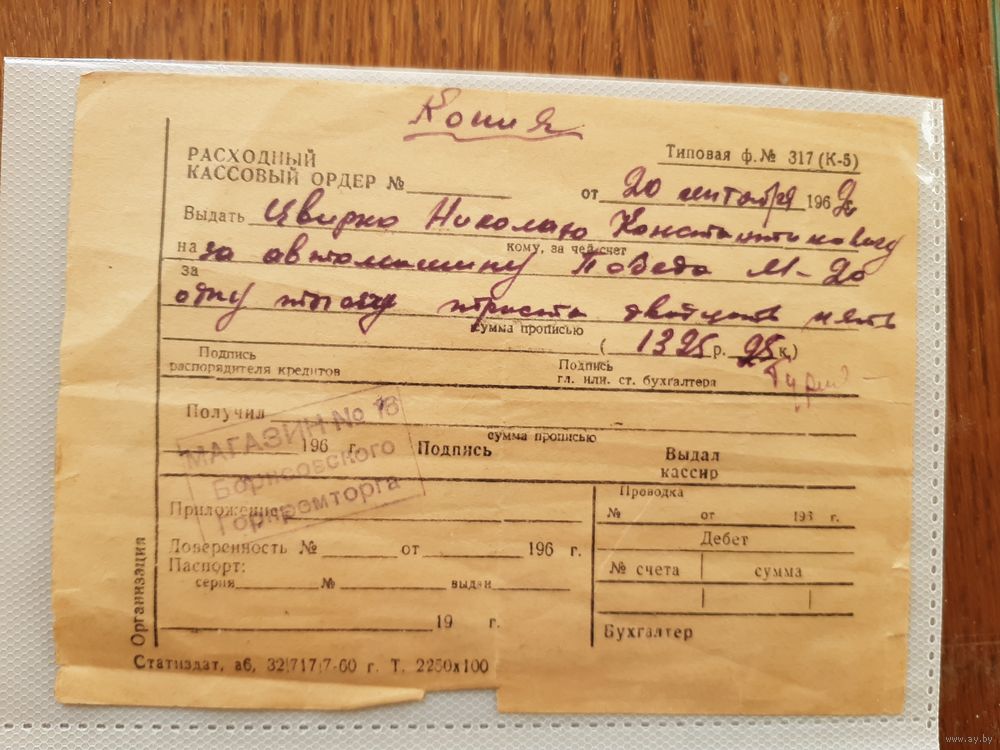 Копия
РАСХОДНЫЙ
КАССОВЫЙ ОРДЕР №
Типовая ф. № 317 (К-5)
от 20 сентября 1962
Выдать Цвирко Николаю Константиновичу
кому, за чей счет
на за автомашину Победа М-20
за
одну тысячу триста двадцать пять
сумма прописью
(1325 р. 25 к.)
Подпись
распорядителя кредитов
Подпись
гл. или. ст. бухгалтера
Получил
сумма прописью
196 г. Подпись
Выдал
кассир
МАГАЗИН № 18
Борисовского
Горпромторга
Приложение
Проводка
№ от 196 г.
Дебет
№ счета сумма
Бухгалтер
Доверенность № от 196 г.
Паспорт:
серия № выдан
19 г.
Организация
Статиздат, аб, 32|717|7-60 г. Т. 2250х100
www.ay.by